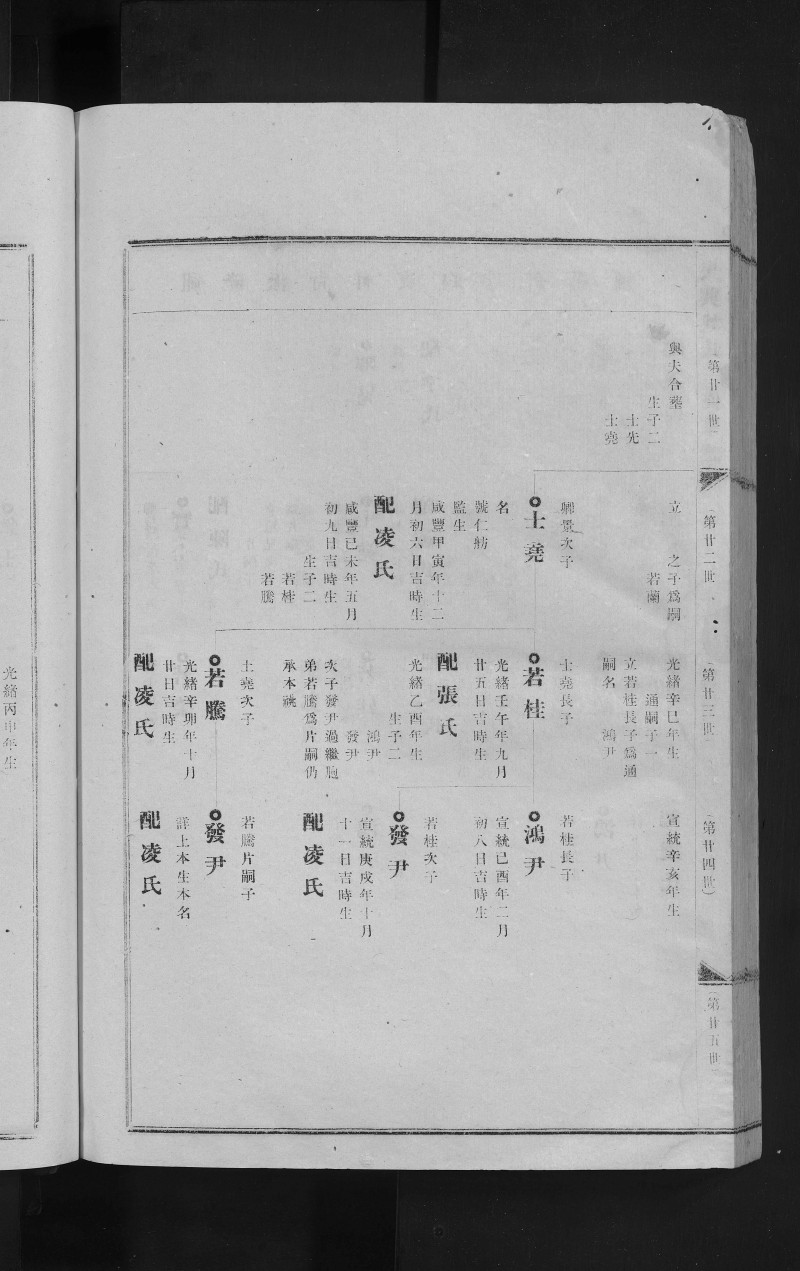 第廿一世
與夫合塟
生子二
士先
士堯
第廿二世
立　之子爲嗣
若蘭
興景次子
士堯
名
號仁舫
監生
咸豐甲寅年十二
月初六日吉時生
配凌氏
咸豐己未年五月
初九日吉時生
生子二
若桂
若騰
第廿三世
光緒辛巳年生
通嗣子一
立若桂長子爲通
嗣名　鴻尹
士堯長子
若桂
光緒壬午年九月
廿五日吉時生
配張氏
光緒乙酉年生
生子二
鴻尹
發尹
次子發尹過繼胞
弟若騰爲片嗣仍
承本祧
士堯次子
若騰
光緒辛卯年十月
廿日吉時生
配凌氏
第廿四世
宣統辛亥年生
若桂長子
鴻尹
宣統己酉年二月
初八日吉時生
若桂次子
發尹
宣統庚戌年十月
十一日吉時生
配凌氏
若騰片嗣子
發尹
詳上本生本名
配凌氏
第廿五世
光緒丙申年生